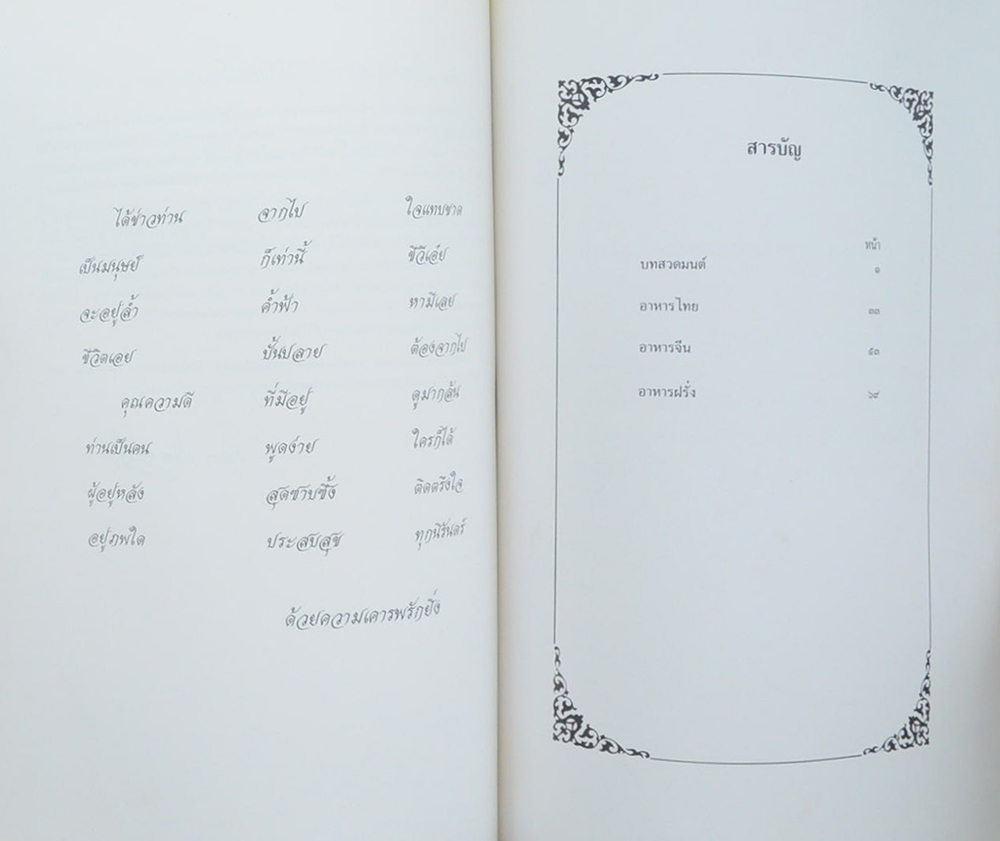 ได้ข่าวท่าน จากไป ใจแทบขาด
เป็นมนุษย์ ก็เท่านี้ ชีวีเอ๋ย
จะอยู่ล้ำ ค้ำฟ้า หามีเลย
ชีวิตเอย บั้นปลาย ต้องจากไป
คุณความดี ที่มีอยู่ ดูมากล้น
ท่านเป็นคน พูดง่าย ใครก็ได้
ผู้อยู่หลัง สุดซาบซึ้ง ติดตรึงใจ
อยู่ภพใด ประสบสุข ทุกนิรันดร์
ด้วยความเคารพรักยิ่ง
สารบัญ
หน้า
บทสวดมนต์ ๑
อาหารไทย ๓๓
อาหารจีน ๕๓
อาหารฝรั่ง ๖๙